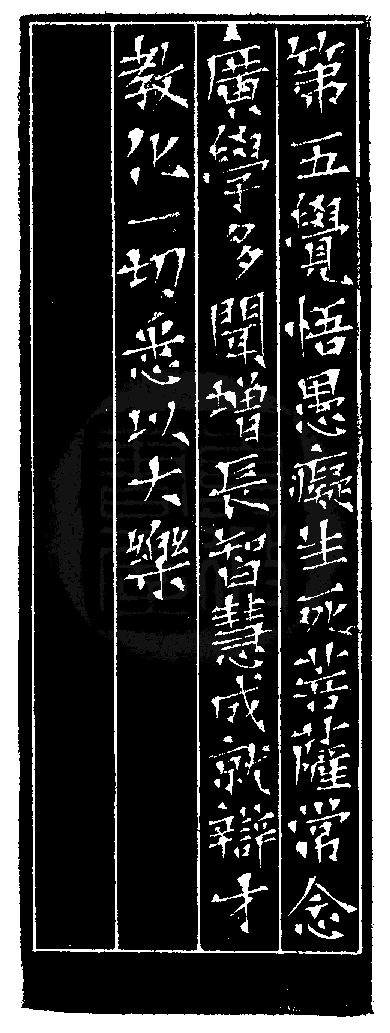 第五覺悟愚癡生死菩薩常念
廣學多聞增長智慧成就辯才
教化一切悉以大樂